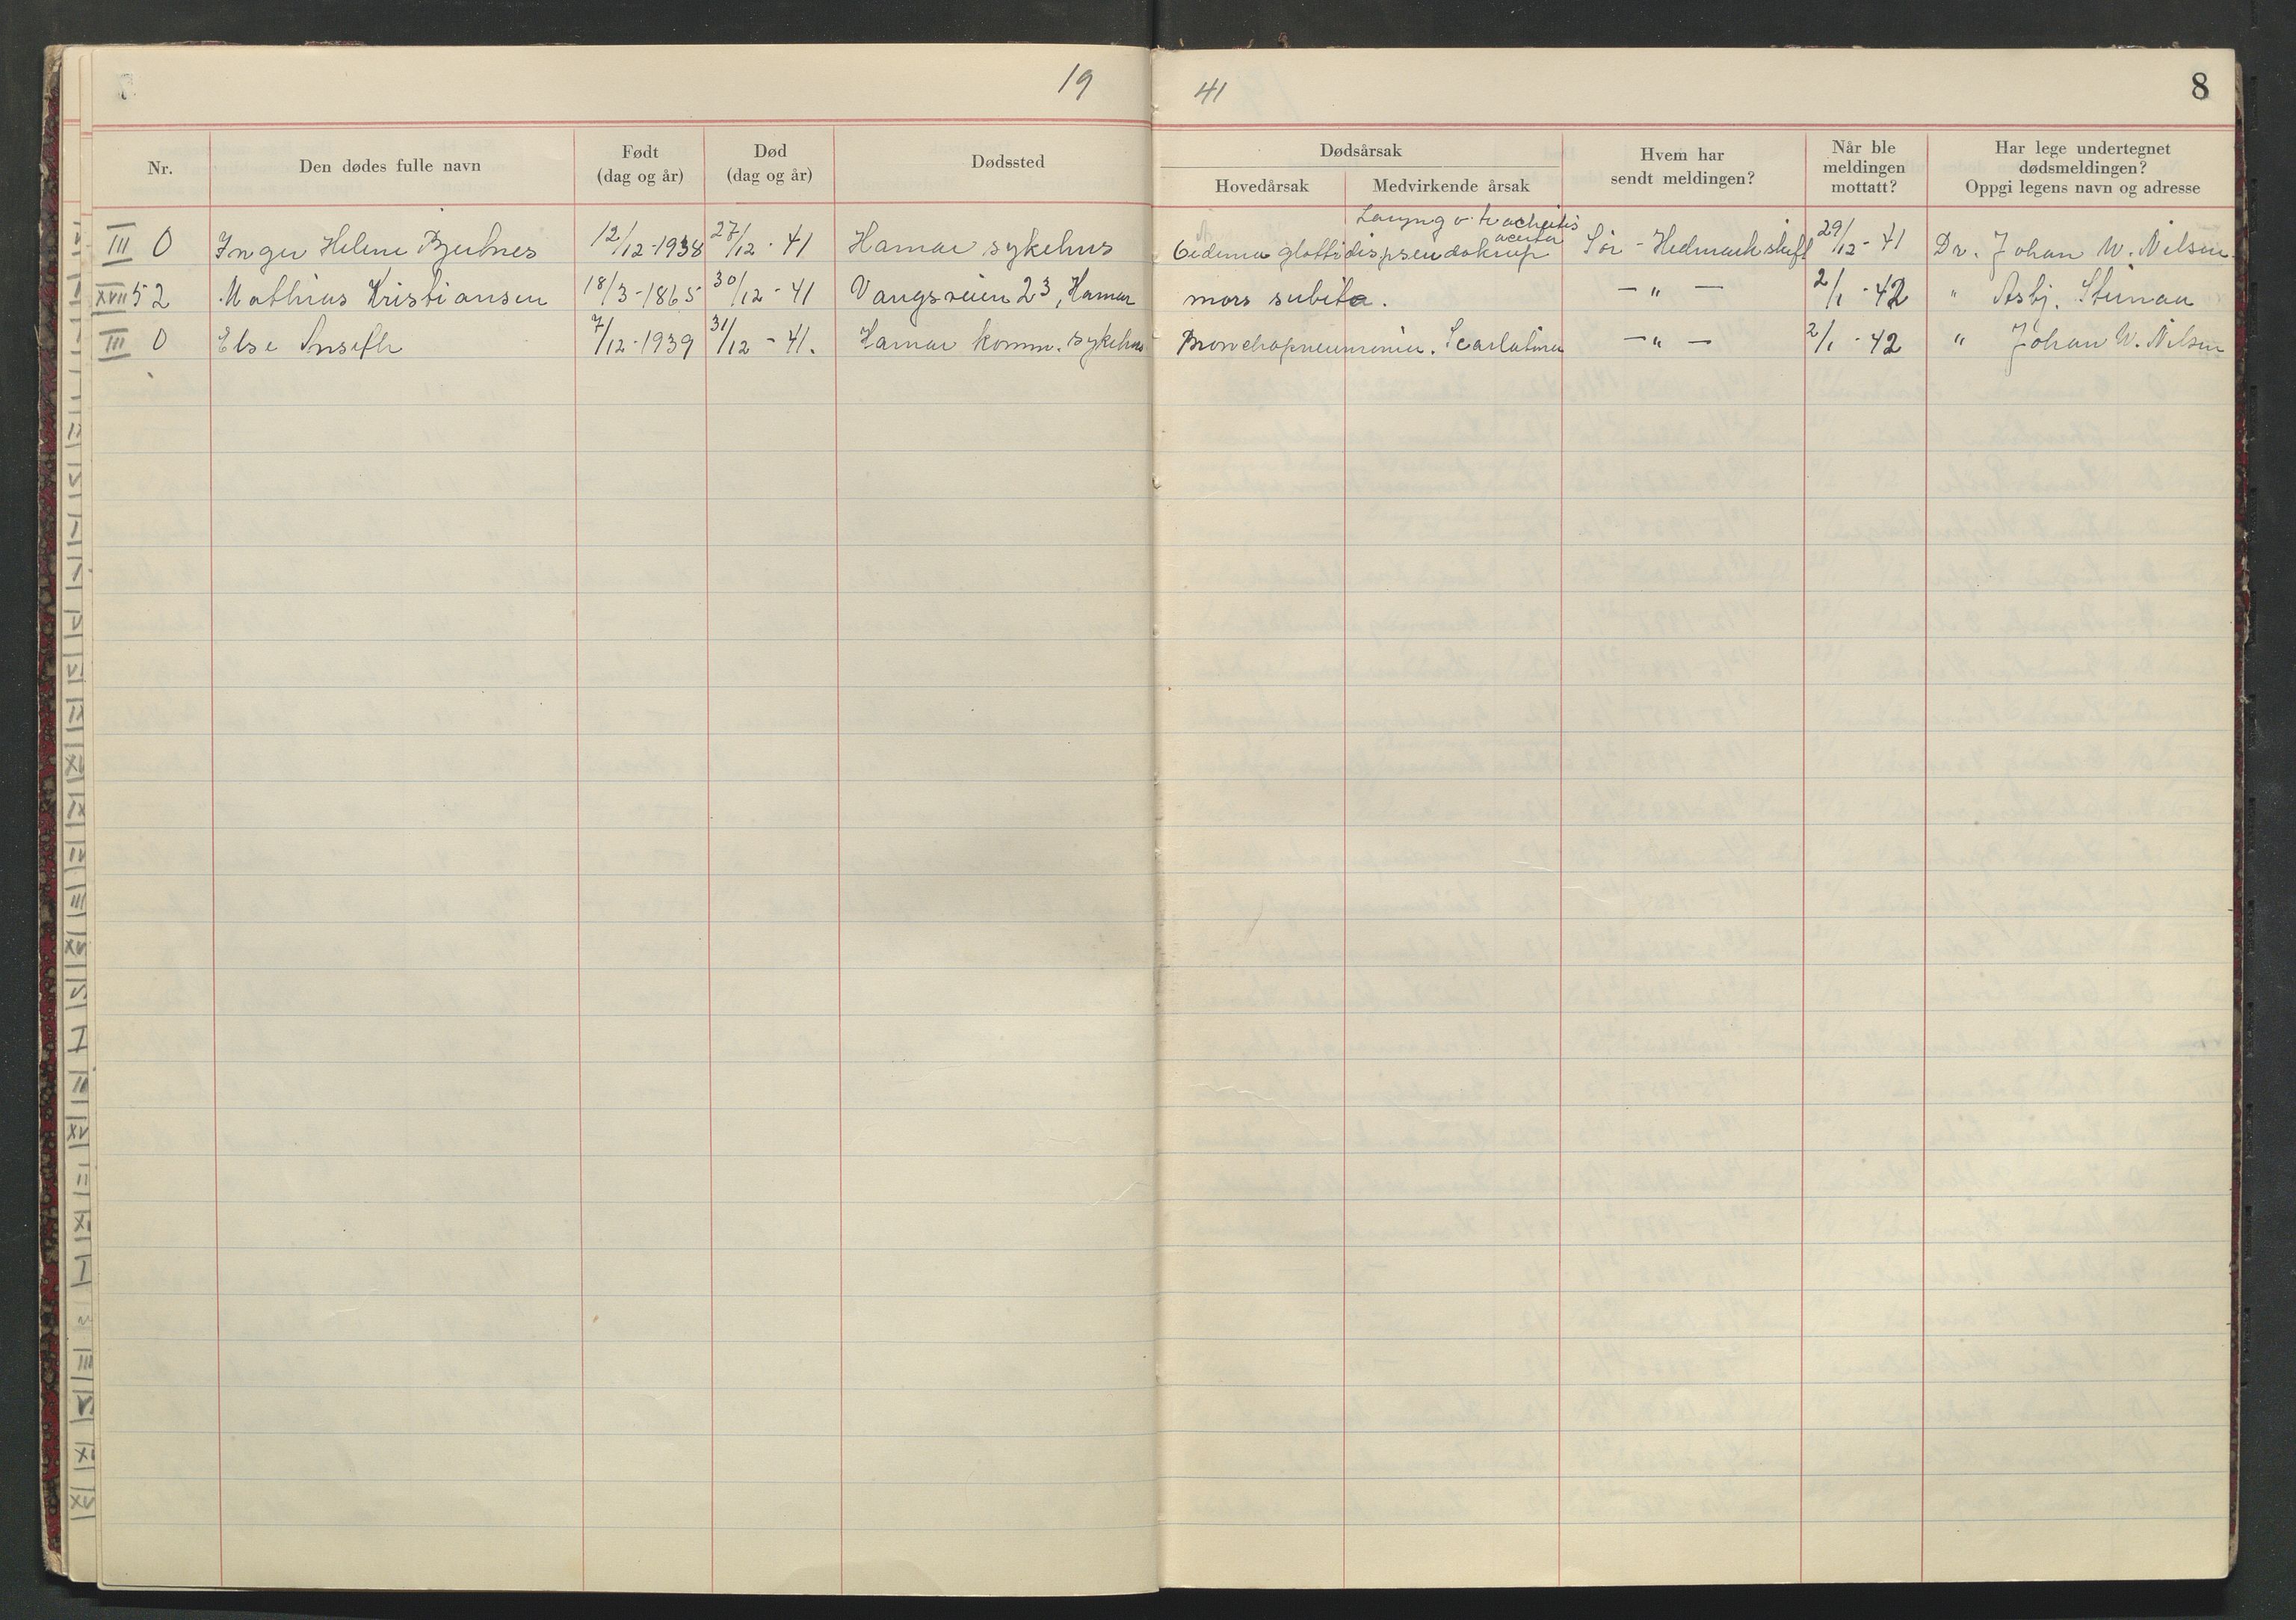 19 41 8
Nr. Den dødes fulle navn Født (dag og år) Død (dag og år) Dødssted Dødsårsak Hovedårsak Medvirkende årsak Hvem har sendt meldingen? Når ble meldingen mottatt? Har lege undertegnet dødsmeldingen? Oppgi legens navn og adresse
Laryngo-tracheitis acuta
III 0 Inger Helene 12/12-1938 27/12-41 Hamar sykehus Oedema glottidis pseudokrup Sør-Hedmark skift 29/12-41 Dr. Johan W. Nilsen
XVII 52 Mathias Kristiansen 18/3-1865 30/12-41 Vangsveien 23, Hamar mors subita. -"- 2/1-42 " Asbj.
III 0 Else 7/12-1939 31/12-41. Hamar komm. sykehus Bronchopneumonia. Scarlatina -"- 2/1-42 " Johan W. Nilsen